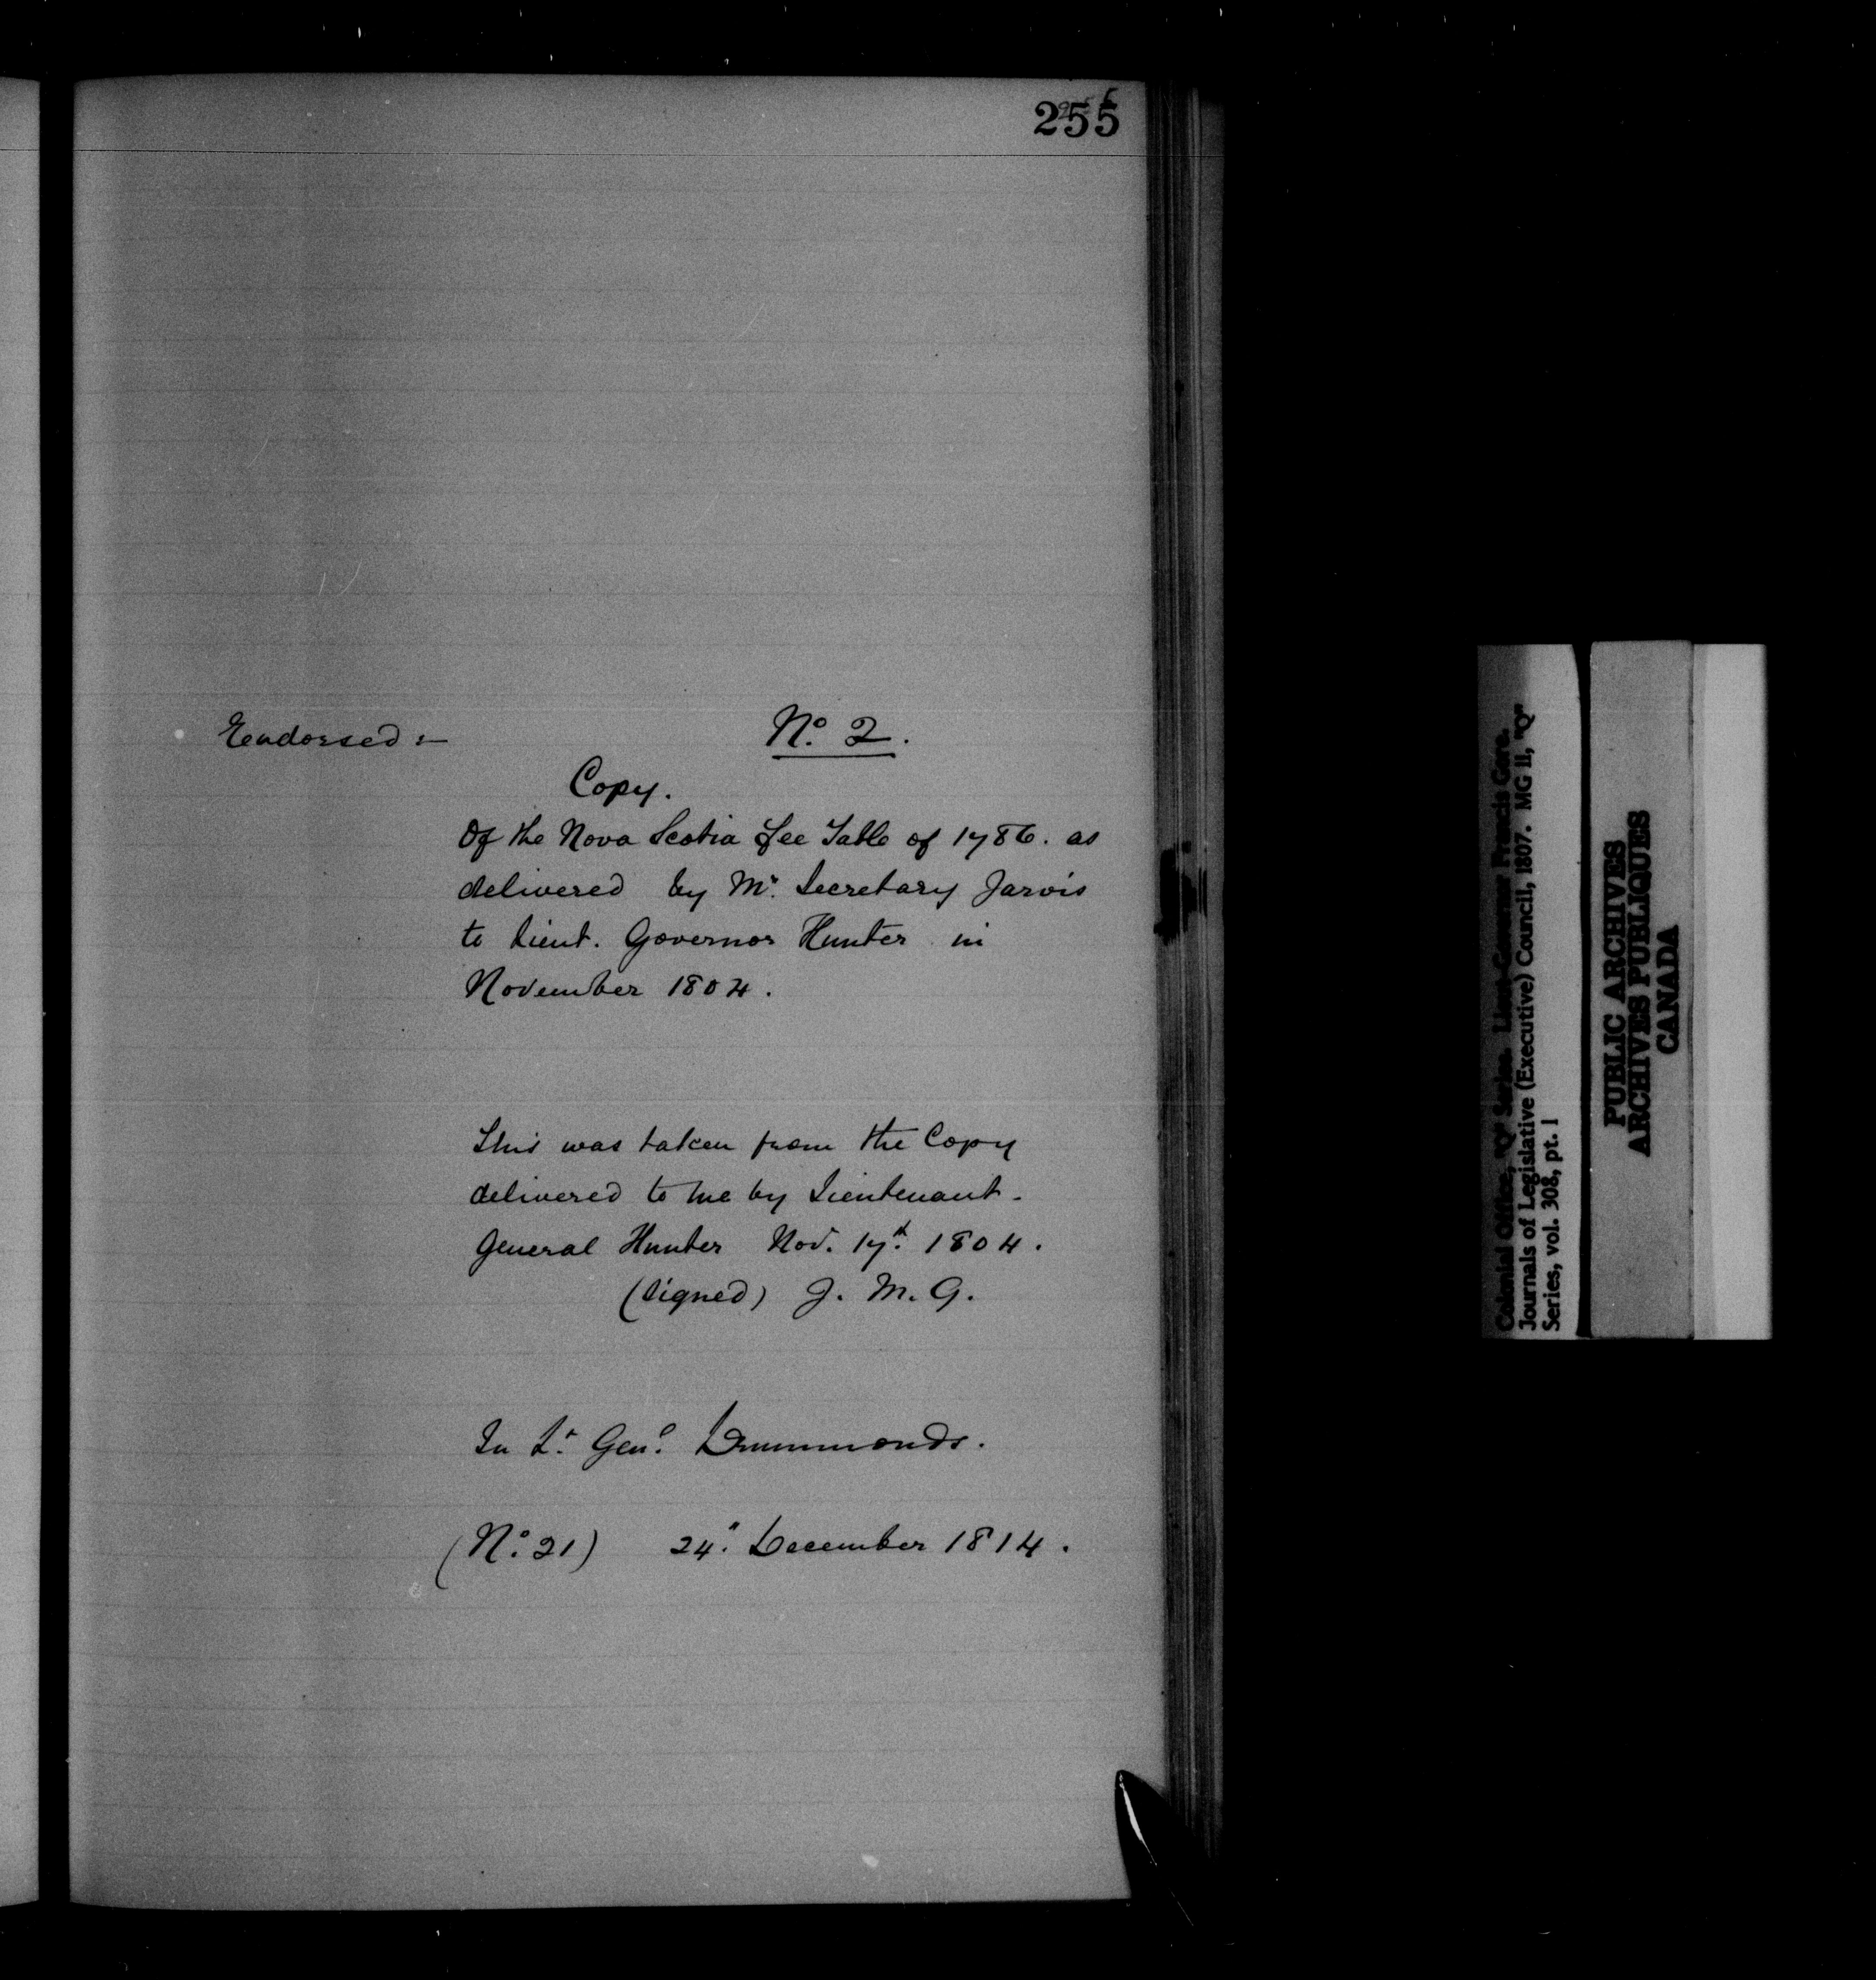 255
Endorsed :-
No. 2.
Copy.
Of the Nova Scotia Fee Table of 1786. as
delivered by Mr. Secretary Jarvis
to Lieut. Governor Hunter in
November 1804.
This was taken from the Copy
delivered to me by Lieutenant-
General Hunter Nov. 17th. 1804.
(signed) J. M. G.
In Lt. Genl. Drummonds.
(No. 21) 24". December 1814.
Colonial Office, "Q" Series. Lieut-Governor Francis Gore.
Journals of Legislative (Executive) Council, 1807. MG 11, "Q"
Series, vol. 308, pt. 1
PUBLIC ARCHIVES
ARCHIVES PUBLIQUES
CANADA